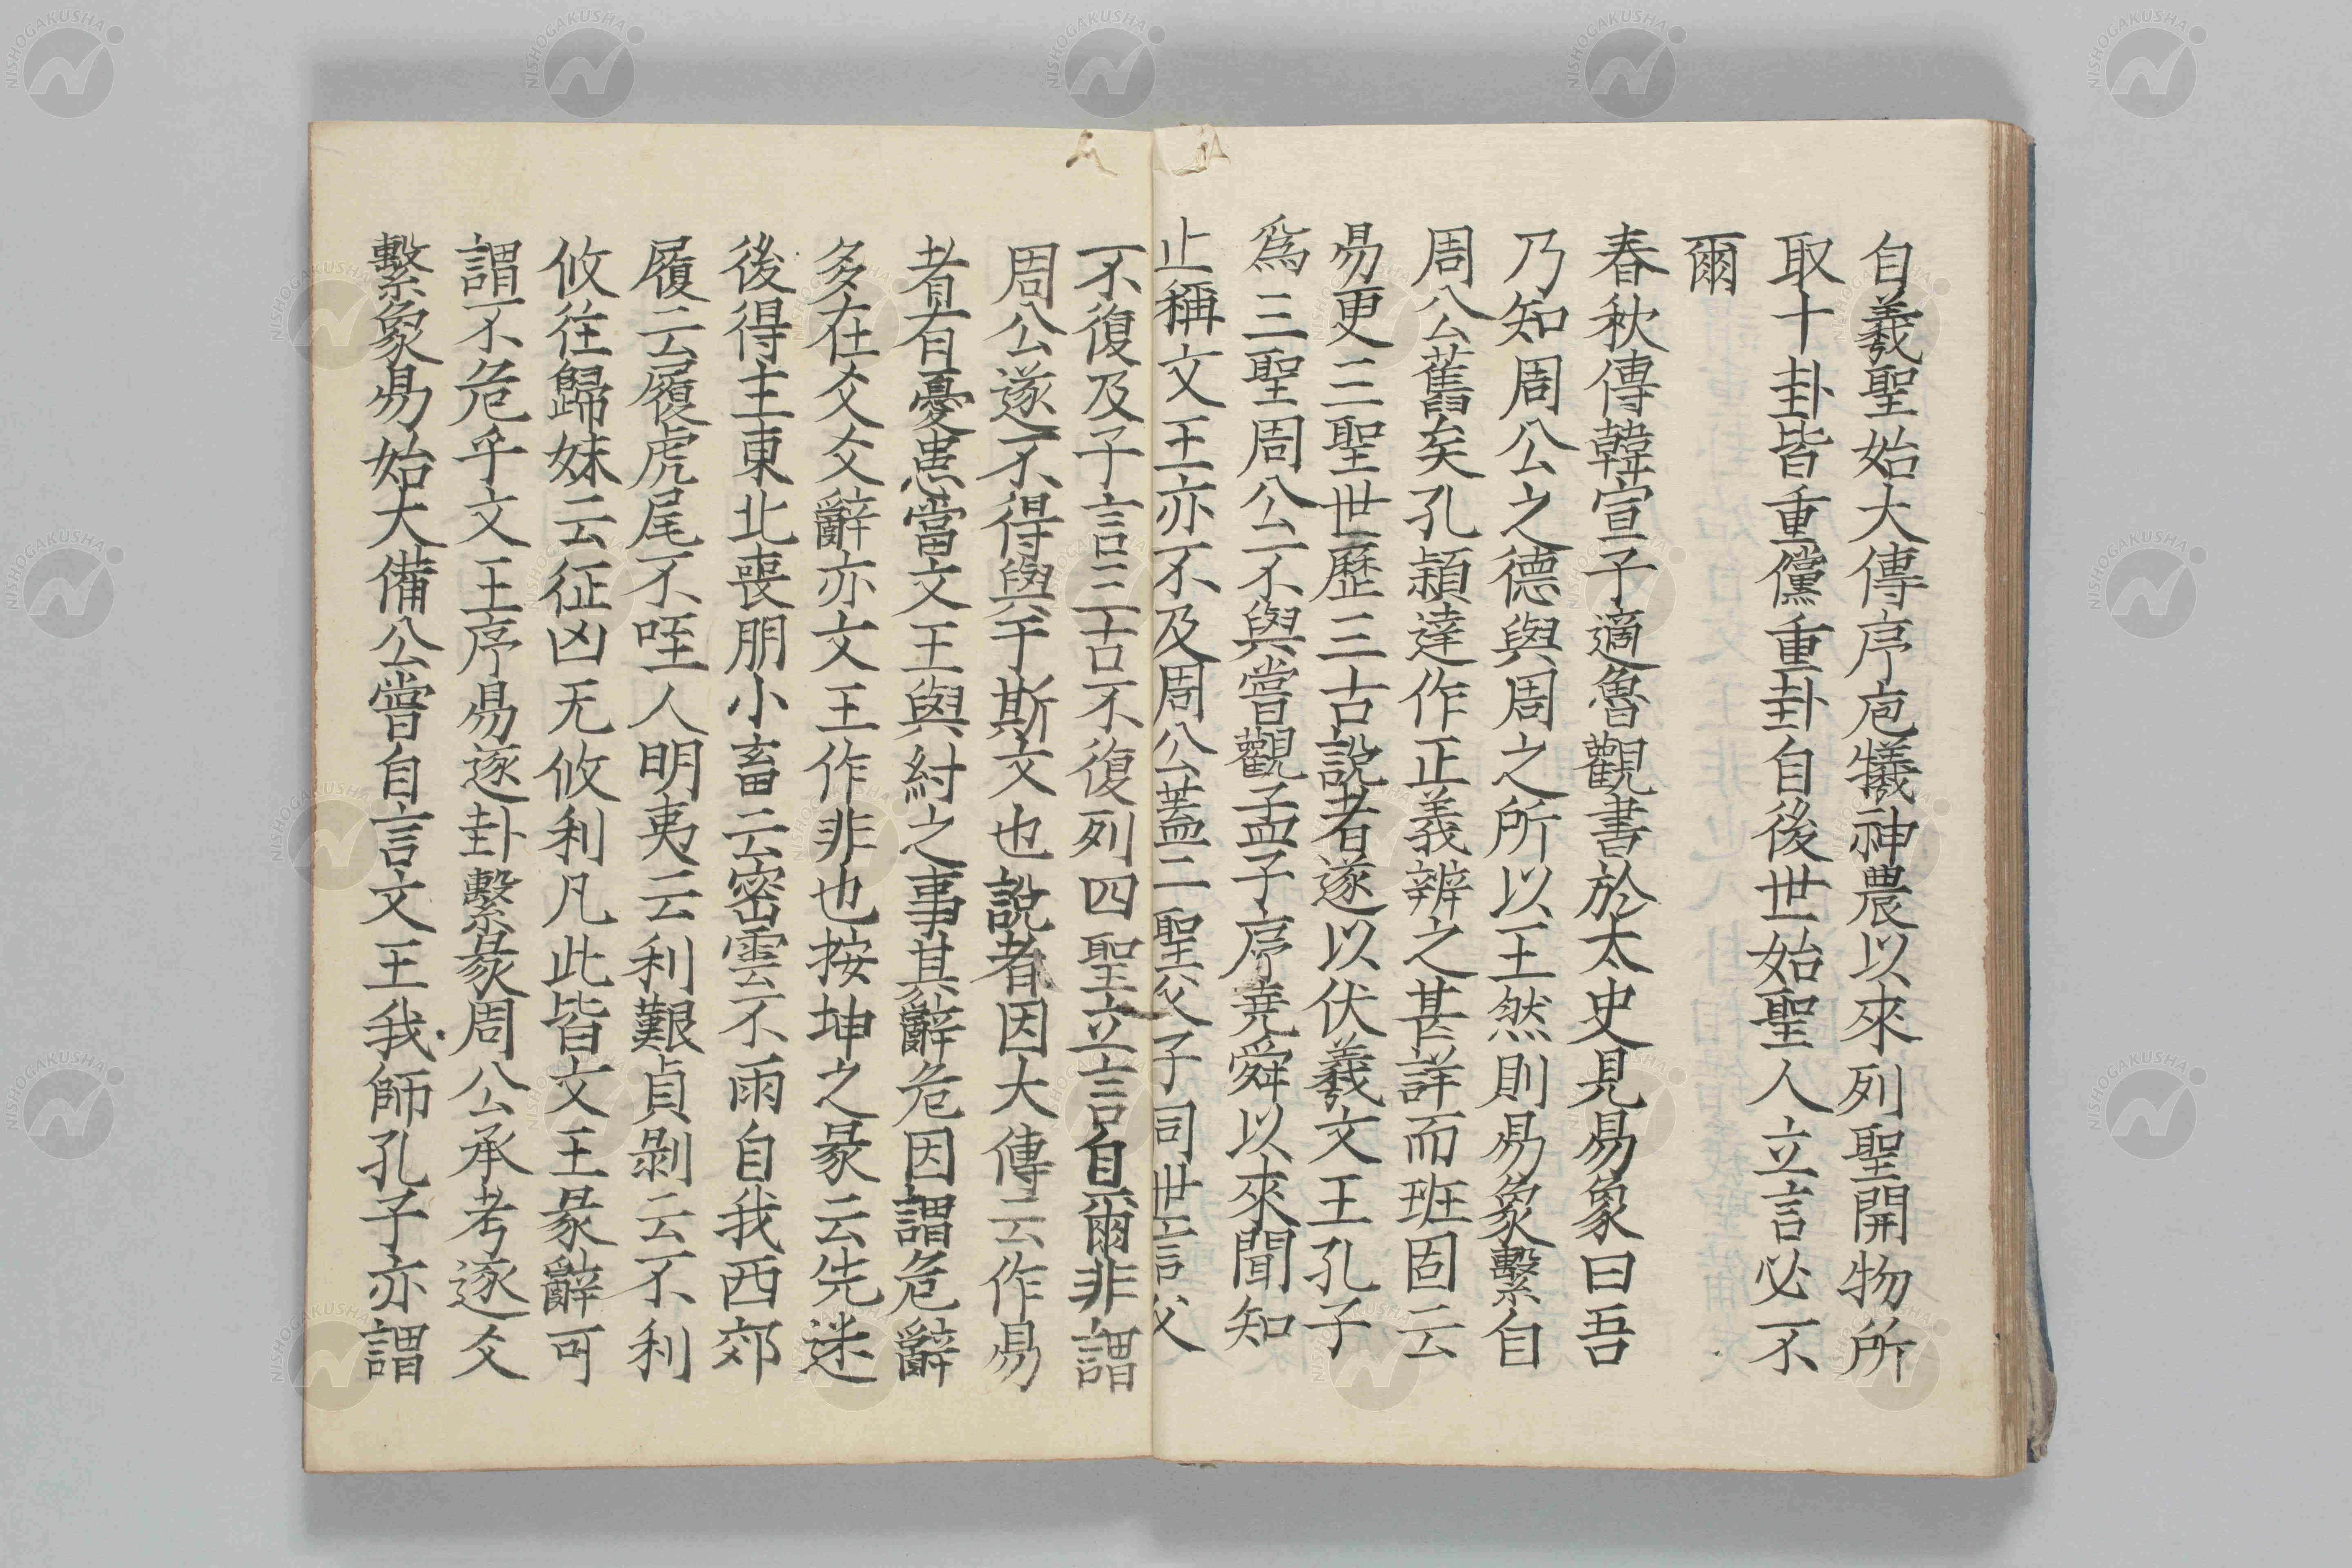 自羲聖始大傳序庖犧神農以來列聖開物所
取十卦皆重儻重卦自後世始聖人立言必不
爾
春秋傳韓宣子適魯觀書於太史見易象曰吾
乃知周公之德與周之所以王然則易象繫自
周公舊矣孔頴達作正義辨之甚詳而班固云
易更三聖世歷三古說者遂以伏羲文王孔子
爲三聖周公不與嘗觀孟子序堯舜以來聞知
止稱文王亦不及周公葢二聖父子同世言父
不復及子言三古不復列四聖立言自爾非謂
周公遂不得與于斯文也說者因大傳云作易
者有憂患當文王與紂之事其辭危因謂危辭
多在爻爻辭亦文王作非也按坤之彖云先迷
後得主東北喪朋小畜云密雲不雨自我西郊
履云履虎尾不咥人明夷云利艱貞剝云不利
攸往歸妹云征凶无攸利凡此皆文王彖辭可
謂不危乎文王序易逐卦繫彖周公承考逐爻
繫象易始大備公嘗自言文王我師孔子亦謂
NISHOGAKUSHA